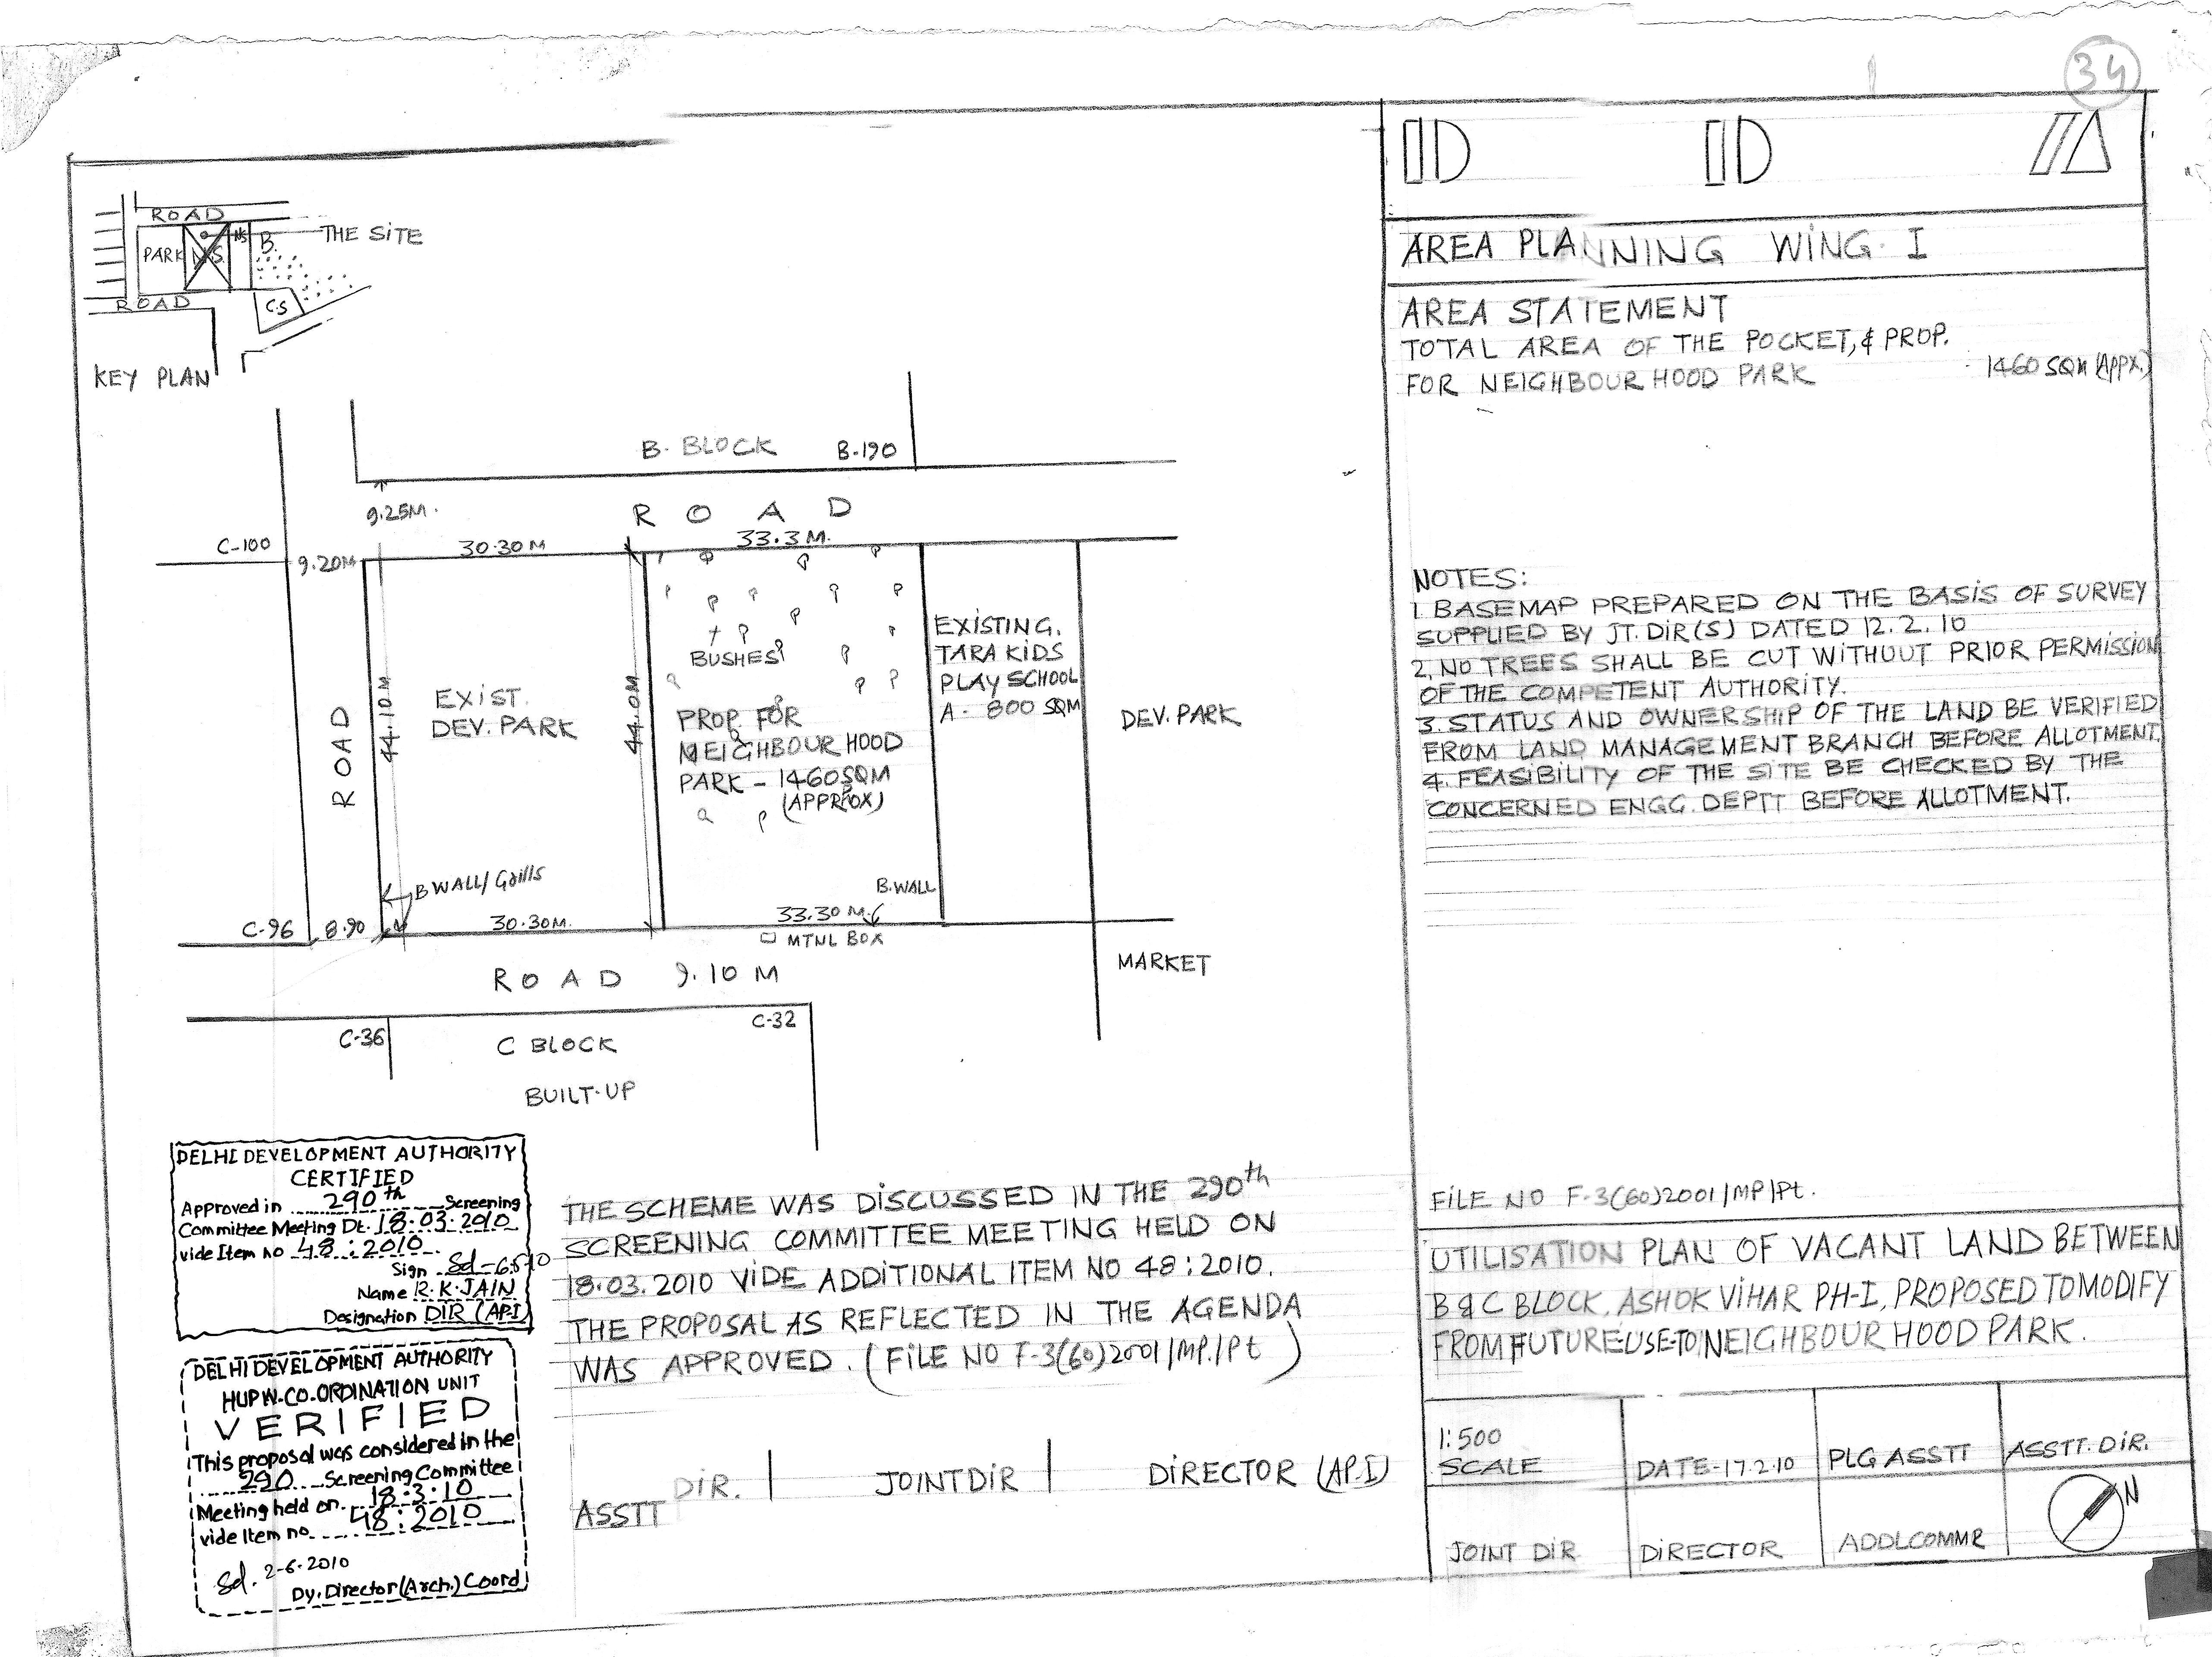 34
DDA
AREA PLANNING WING. I
AREA STATEMENT
TOTAL AREA OF THE POCKET, & PROP.
FOR NEIGHBOUR HOOD PARK : 1460 SQM (APPX.)
NOTES:
1. BASEMAP PREPARED ON THE BASIS OF SURVEY
SUPPLIED BY JT. DIR(S) DATED 12.2.10
2. NO TREES SHALL BE CUT WITHOUT PRIOR PERMISSION
OF THE COMPETENT AUTHORITY.
3. STATUS AND OWNERSHIP OF THE LAND BE VERIFIED
FROM LAND MANAGEMENT BRANCH BEFORE ALLOTMENT.
4. FEASIBILITY OF THE SITE BE CHECKED BY THE
CONCERNED ENGG. DEPTT BEFORE ALLOTMENT.
FILE NO F-3(60)2001/MP/Pt.
UTILISATION PLAN OF VACANT LAND BETWEEN
B & C BLOCK, ASHOK VIHAR PH-I, PROPOSED TO MODIFY
FROM FUTURE-USE-TO NEIGHBOUR HOOD PARK.
1:500
SCALE
DATE-17.2.10
PLG ASSTT
ASSTT. DIR.
JOINT DIR
DIRECTOR
ADDLCOMMR
N
ROAD
THE SITE
PARK
N.S.
N.S
B.
C.S
ROAD
KEY PLAN
B. BLOCK
B-190
9.25M.
ROAD
C-100
9.20M
30.30M
33.3M.
BUSHES
EXIST.
DEV. PARK
44.10M
44.0M
ROAD
PROP. FOR
NEIGHBOUR HOOD
PARK - 1460SQM
(APPROX)
EXISTING.
TARA KIDS
PLAY SCHOOL
A- 800 SQM
DEV. PARK
B WALL/ Grills
B. WALL
C-96
8.90
30.30M.
33.30M.
MTNL BOX
ROAD 9.10 M
MARKET
C-36
C-32
C BLOCK
BUILT-UP
DELHI DEVELOPMENT AUTHORITY
CERTIFIED
Approved in 290th Screening
Committee Meeting Dt. 18.03.2010
vide Item no 48:2010
Sign Sd-
Name R.K.JAIN
Designation DIR (AP-I)
DELHI DEVELOPMENT AUTHORITY
HUPW-CO-ORDINATION UNIT
VERIFIED
This proposal was considered in the
290 Screening Committee
Meeting held on. 18:3:10
vide Item no. 48:2010
Sd. 2-6-2010
Dy. Director (Arch.) Coord
THE SCHEME WAS DISCUSSED IN THE 290th
SCREENING COMMITTEE MEETING HELD ON
18.03.2010 VIDE ADDITIONAL ITEM NO 48:2010.
THE PROPOSAL AS REFLECTED IN THE AGENDA
WAS APPROVED. (FILE NO F-3(60)2001/MP./Pt)
ASSTT DIR.
JOINT DIR
DIRECTOR (AP.I)